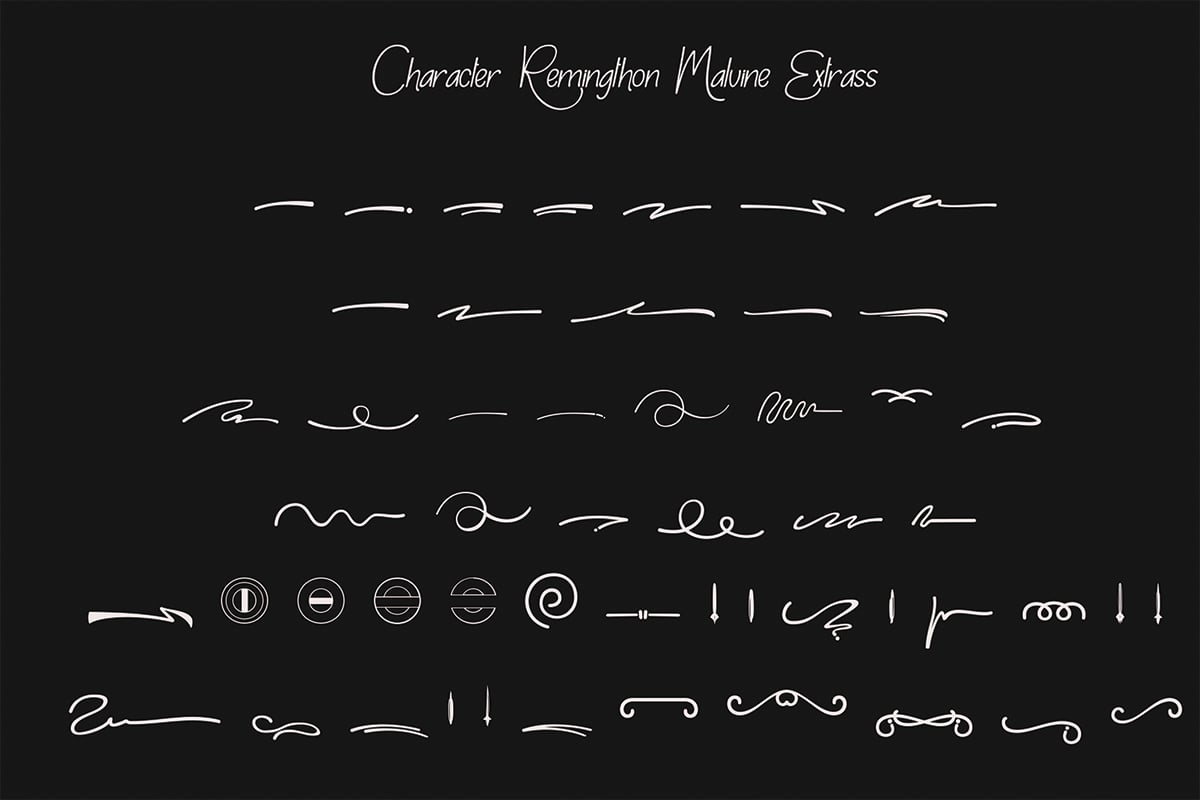 Character Remingthon Malvine Extrass